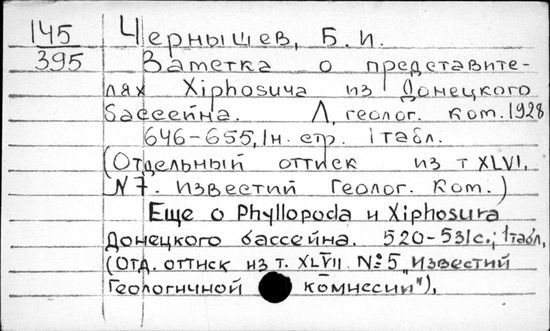 145
395
Чернышев, Б. И.
Заметка о представите-
лях Xiphosura из Донецкого
бассейна. Л, геолог. ком. 1928
646-655, Iн. стр. 1 табл.
(Отдельный оттиск из т XLVI.
N 7. Известий Геолог. Ком.)
Еще о Phyllopoda и Xiphosura
Донецкого бассейна. 520-531с.; 1табл,
(Отд. оттиск из т. XLVII № 5 "Известий
Геологичной комиссии"),